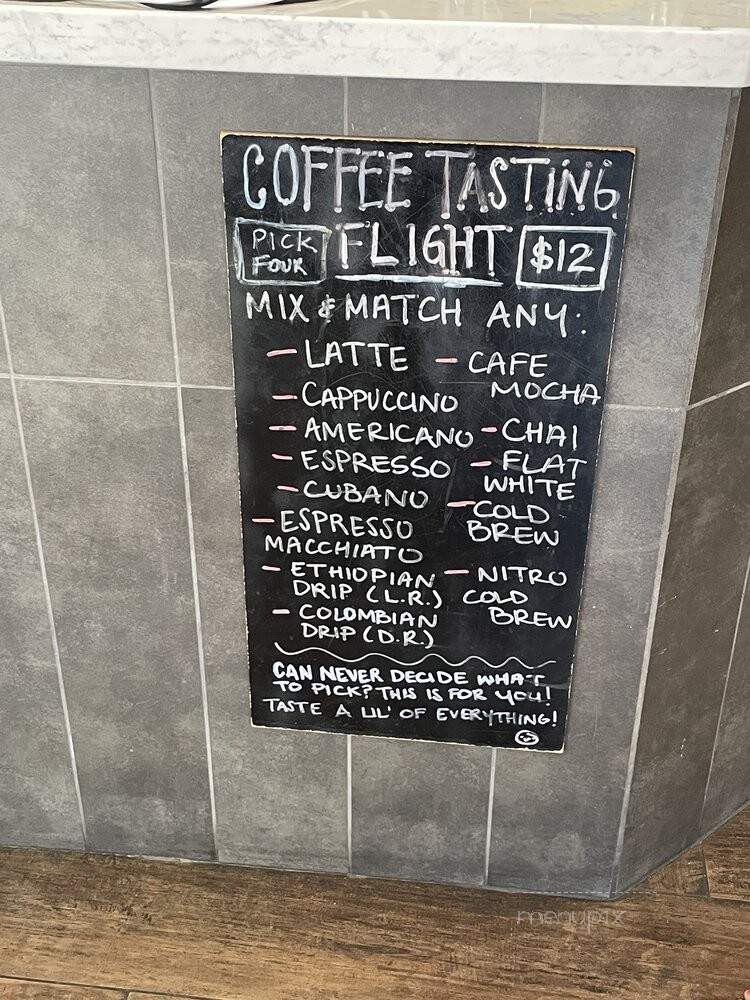 COFFEE TASTING
PICK FOUR FLIGHT $12
MIX & MATCH ANY:
- LATTE
- CAPPUCCINO
- AMERICANO
- ESPRESSO
- CUBANO
- ESPRESSO
MACCHIATO
- ETHIOPIAN
DRIP (L.R.)
- COLOMBIAN
DRIP (D.R.)
- CAFE
MOCHA
- CHAI
- FLAT
WHITE
- COLD
BREW
- NITRO
COLD
BREW
CAN NEVER DECIDE WHAT
TO PICK? THIS IS FOR YOU!
TASTE A LIL' OF EVERYTHING!
menupix